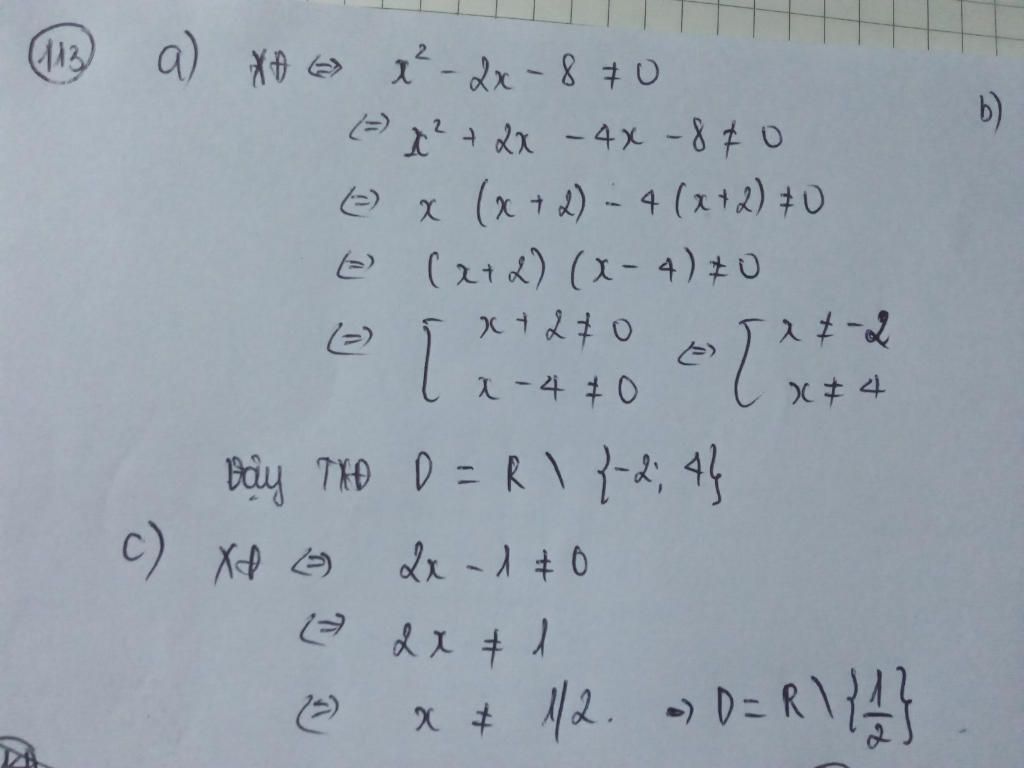 113 a) XĐ ⇔ x² - 2x - 8 ≠ 0
b)
⇔ x² + 2x - 4x - 8 ≠ 0
⇔ x (x + 2) - 4 (x+2) ≠ 0
⇔ (x+2) (x - 4) ≠ 0
⇔ [ x + 2 ≠ 0 ⇔ [ x ≠ -2
x - 4 ≠ 0 x ≠ 4
Vậy TXĐ D = R \ {-2; 4}
c) XĐ ⇔ 2x - 1 ≠ 0
⇔ 2x ≠ 1
⇔ x ≠ 1/2. → D = R \ {1/2}